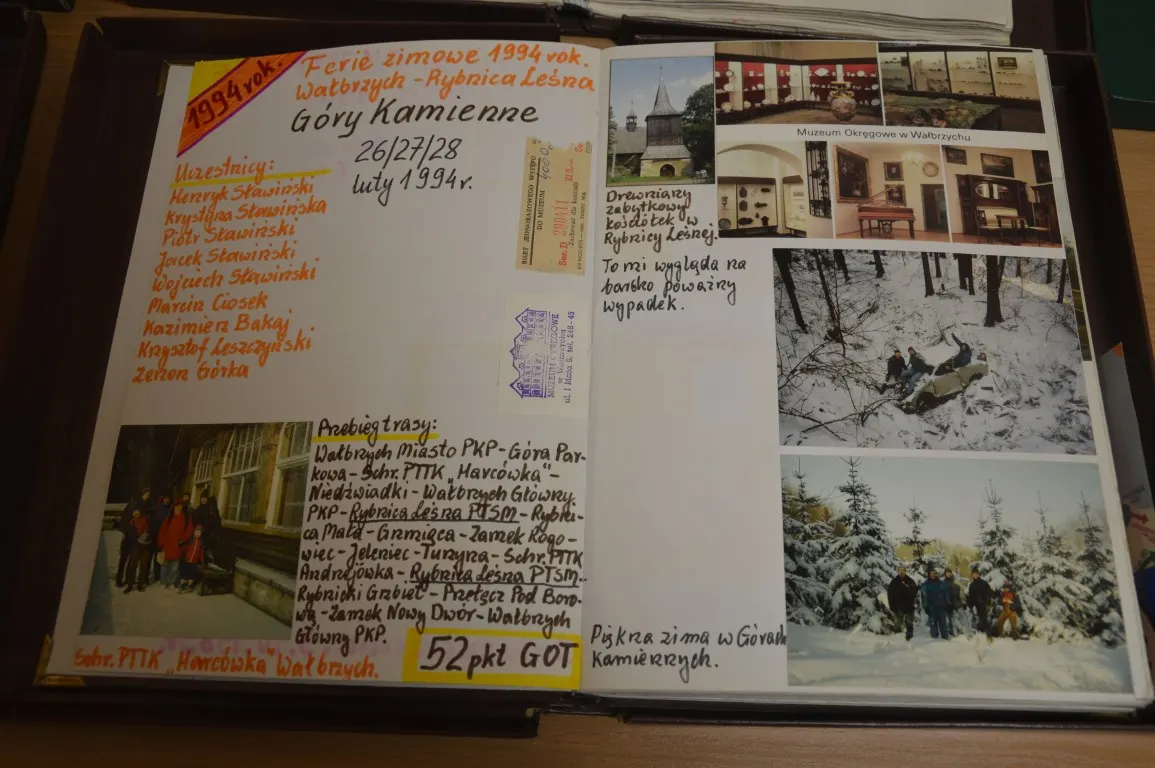 1994 rok.
Ferie zimowe 1994 rok.
Wałbrzych - Rybnica Leśna
Góry Kamienne
26/27/28
luty 1994r.
Uczestnicy:
Henryk Sławiński
Krystyna Sławińska
Piotr Sławiński
Jacek Sławiński
Wojciech Sławiński
Marcin Ciosek
Kazimierz Bakaj
Krzysztof Leszczyński
Zenon Górka
BILET JEDNORAZOWEGO WSTĘPU
DO MUZEUM
MUZEUM OKRĘGOWE
w Wałbrzychu
ul. 1 Maja 9, tel. 248-45
Przebieg trasy:
Wałbrzych Miasto PKP - Góra Par-
kowa - Schr. PTTK „Harcówka" -
Niedźwiadki - Wałbrzych Główny
PKP - Rybnica Leśna PTSM - Rybni-
ca Mała - Grzmiąca - Zamek Rogo-
wiec - Jeleniec - Turzyna - Schr. PTTK
Andrzejówka - Rybnica Leśna PTSM -
Rybnicki Grzbiet - Przełęcz Pod Boro-
wą - Zamek Nowy Dwór - Wałbrzych
Główny PKP.
52 pkt GOT
Schr. PTTK „Harcówka" Wałbrzych.
Muzeum Okręgowe w Wałbrzychu
Drewniany
zabytkowy
kościółek w
Rybnicy Leśnej.
To mi wygląda na
bardzo poważny
wypadek.
Piękna zima w Górach
Kamiennych.